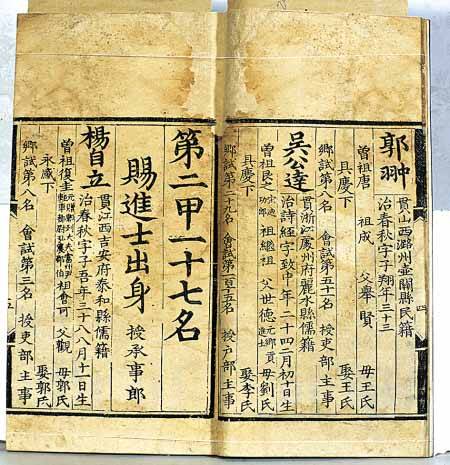 郭翀
貫山西潞州壺關縣民籍
治春秋字子翔年三十三
曾祖唐 祖成 父舉賢 母王氏
具慶下 娶王氏
鄉試第八名 會試第五十一名 授吏部主事
吳公達
貫浙江處州府麗水縣儒籍
治詩經字致中年二十四二月初十日生
曾祖艮之 祖繼祖 父世德 元鄉貢進士 母劉氏
具慶下 娶李氏
鄉試第二十九名 會試第一百十五名 授戶部主事
第二甲一十七名
賜進士出身 授承事郎
楊自立
貫江西吉安府泰和縣儒籍
治春秋字子吾年三十八八月十一日生
曾祖復圭 祖會可 父觀 母郭氏
永感下 娶郭氏
鄉試第八名 會試第三名 授吏部主事
四
五